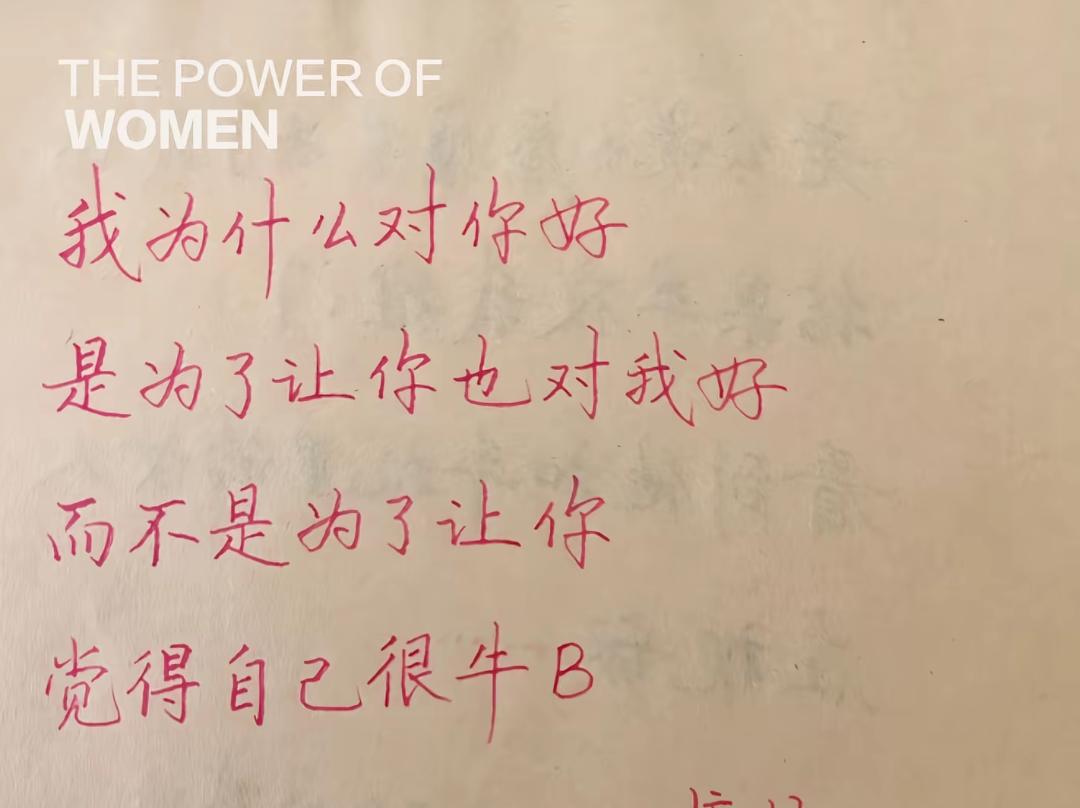 THE POWER OF
WOMEN
我为什么对你好
是为了让你也对我好
而不是为了让你
觉得自己很牛B